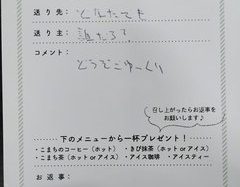 送り先： どなたでも
送り主： 誰だろ？
コメント：
どうぞごゆっくり
召し上がったらお返事を
お願いします♪
下のメニューから一杯プレゼント！
・こまちのコーヒー（ホット） ・きび抹茶（ホットorアイス）
・こまち茶（ホットorアイス） ・アイス珈琲 ・アイスティー
お返事：